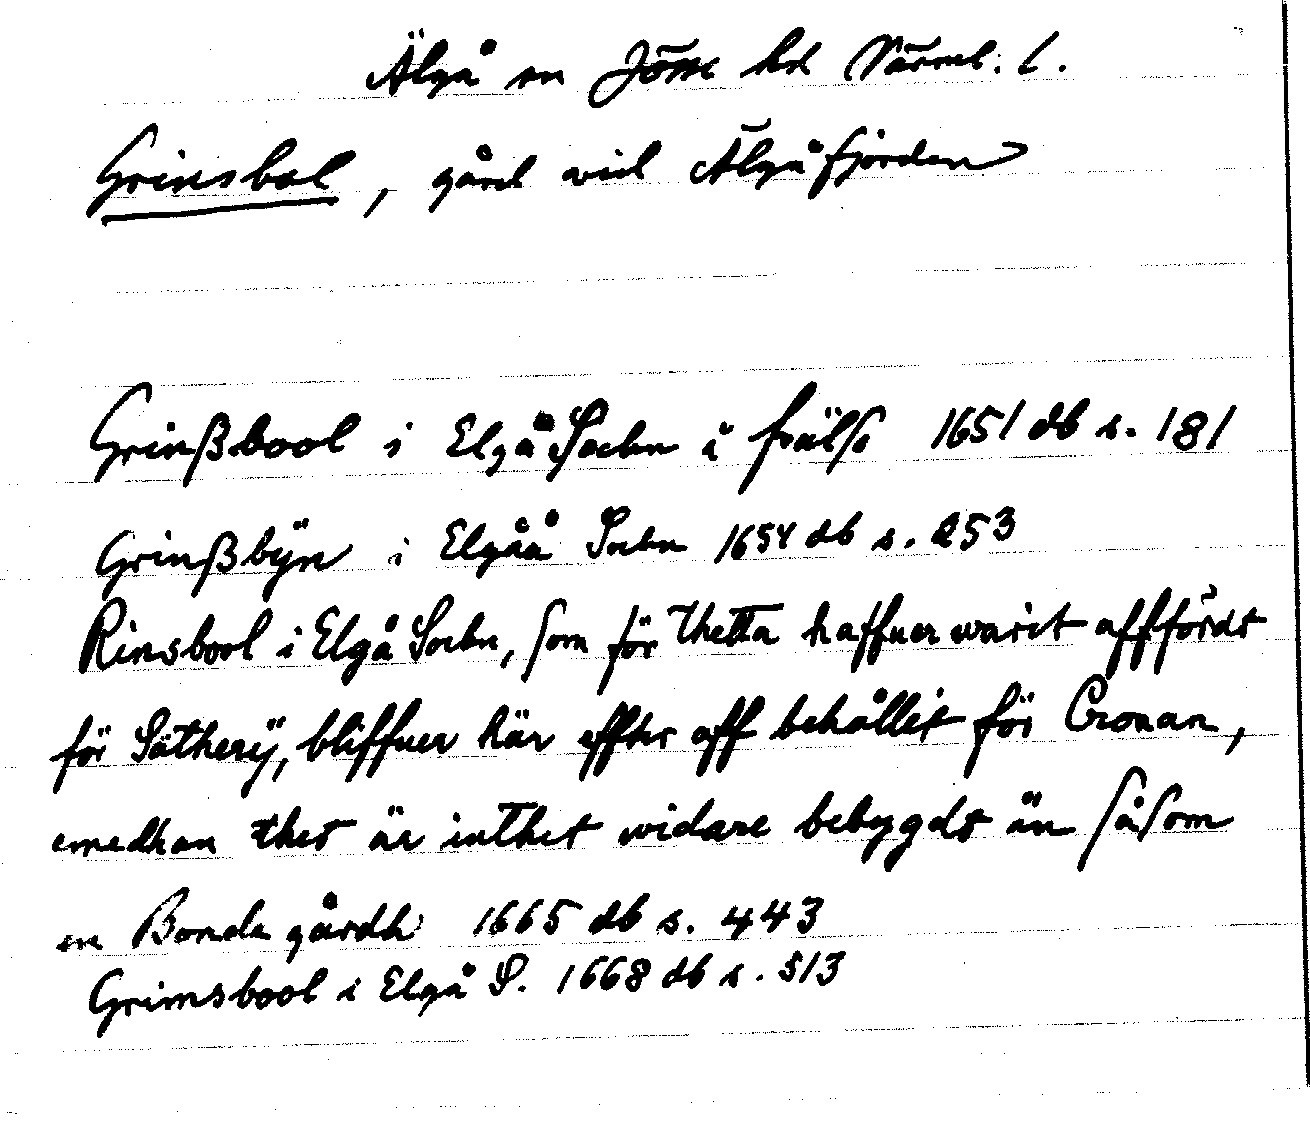 Älgå sn Jösse hd Värml. l.
Grinsbol, gård vid Älgåfjorden
Grinßbool i Elgå Sochn i frälse 1651 db s. 181
Grinßbÿn i Elgåå Sochn 1654 db s. 253
Rinsbool i Elgå Sochn, som för thetta haffuer warit affördt
för Sätherÿ, bliffuer här effter aff behållit för Cronan,
emedhan thet är inthet widare bebygdt än såsom
en Bonde gårdh 1665 db s. 443
Grimsbool i Elgå S. 1668 db s. 513